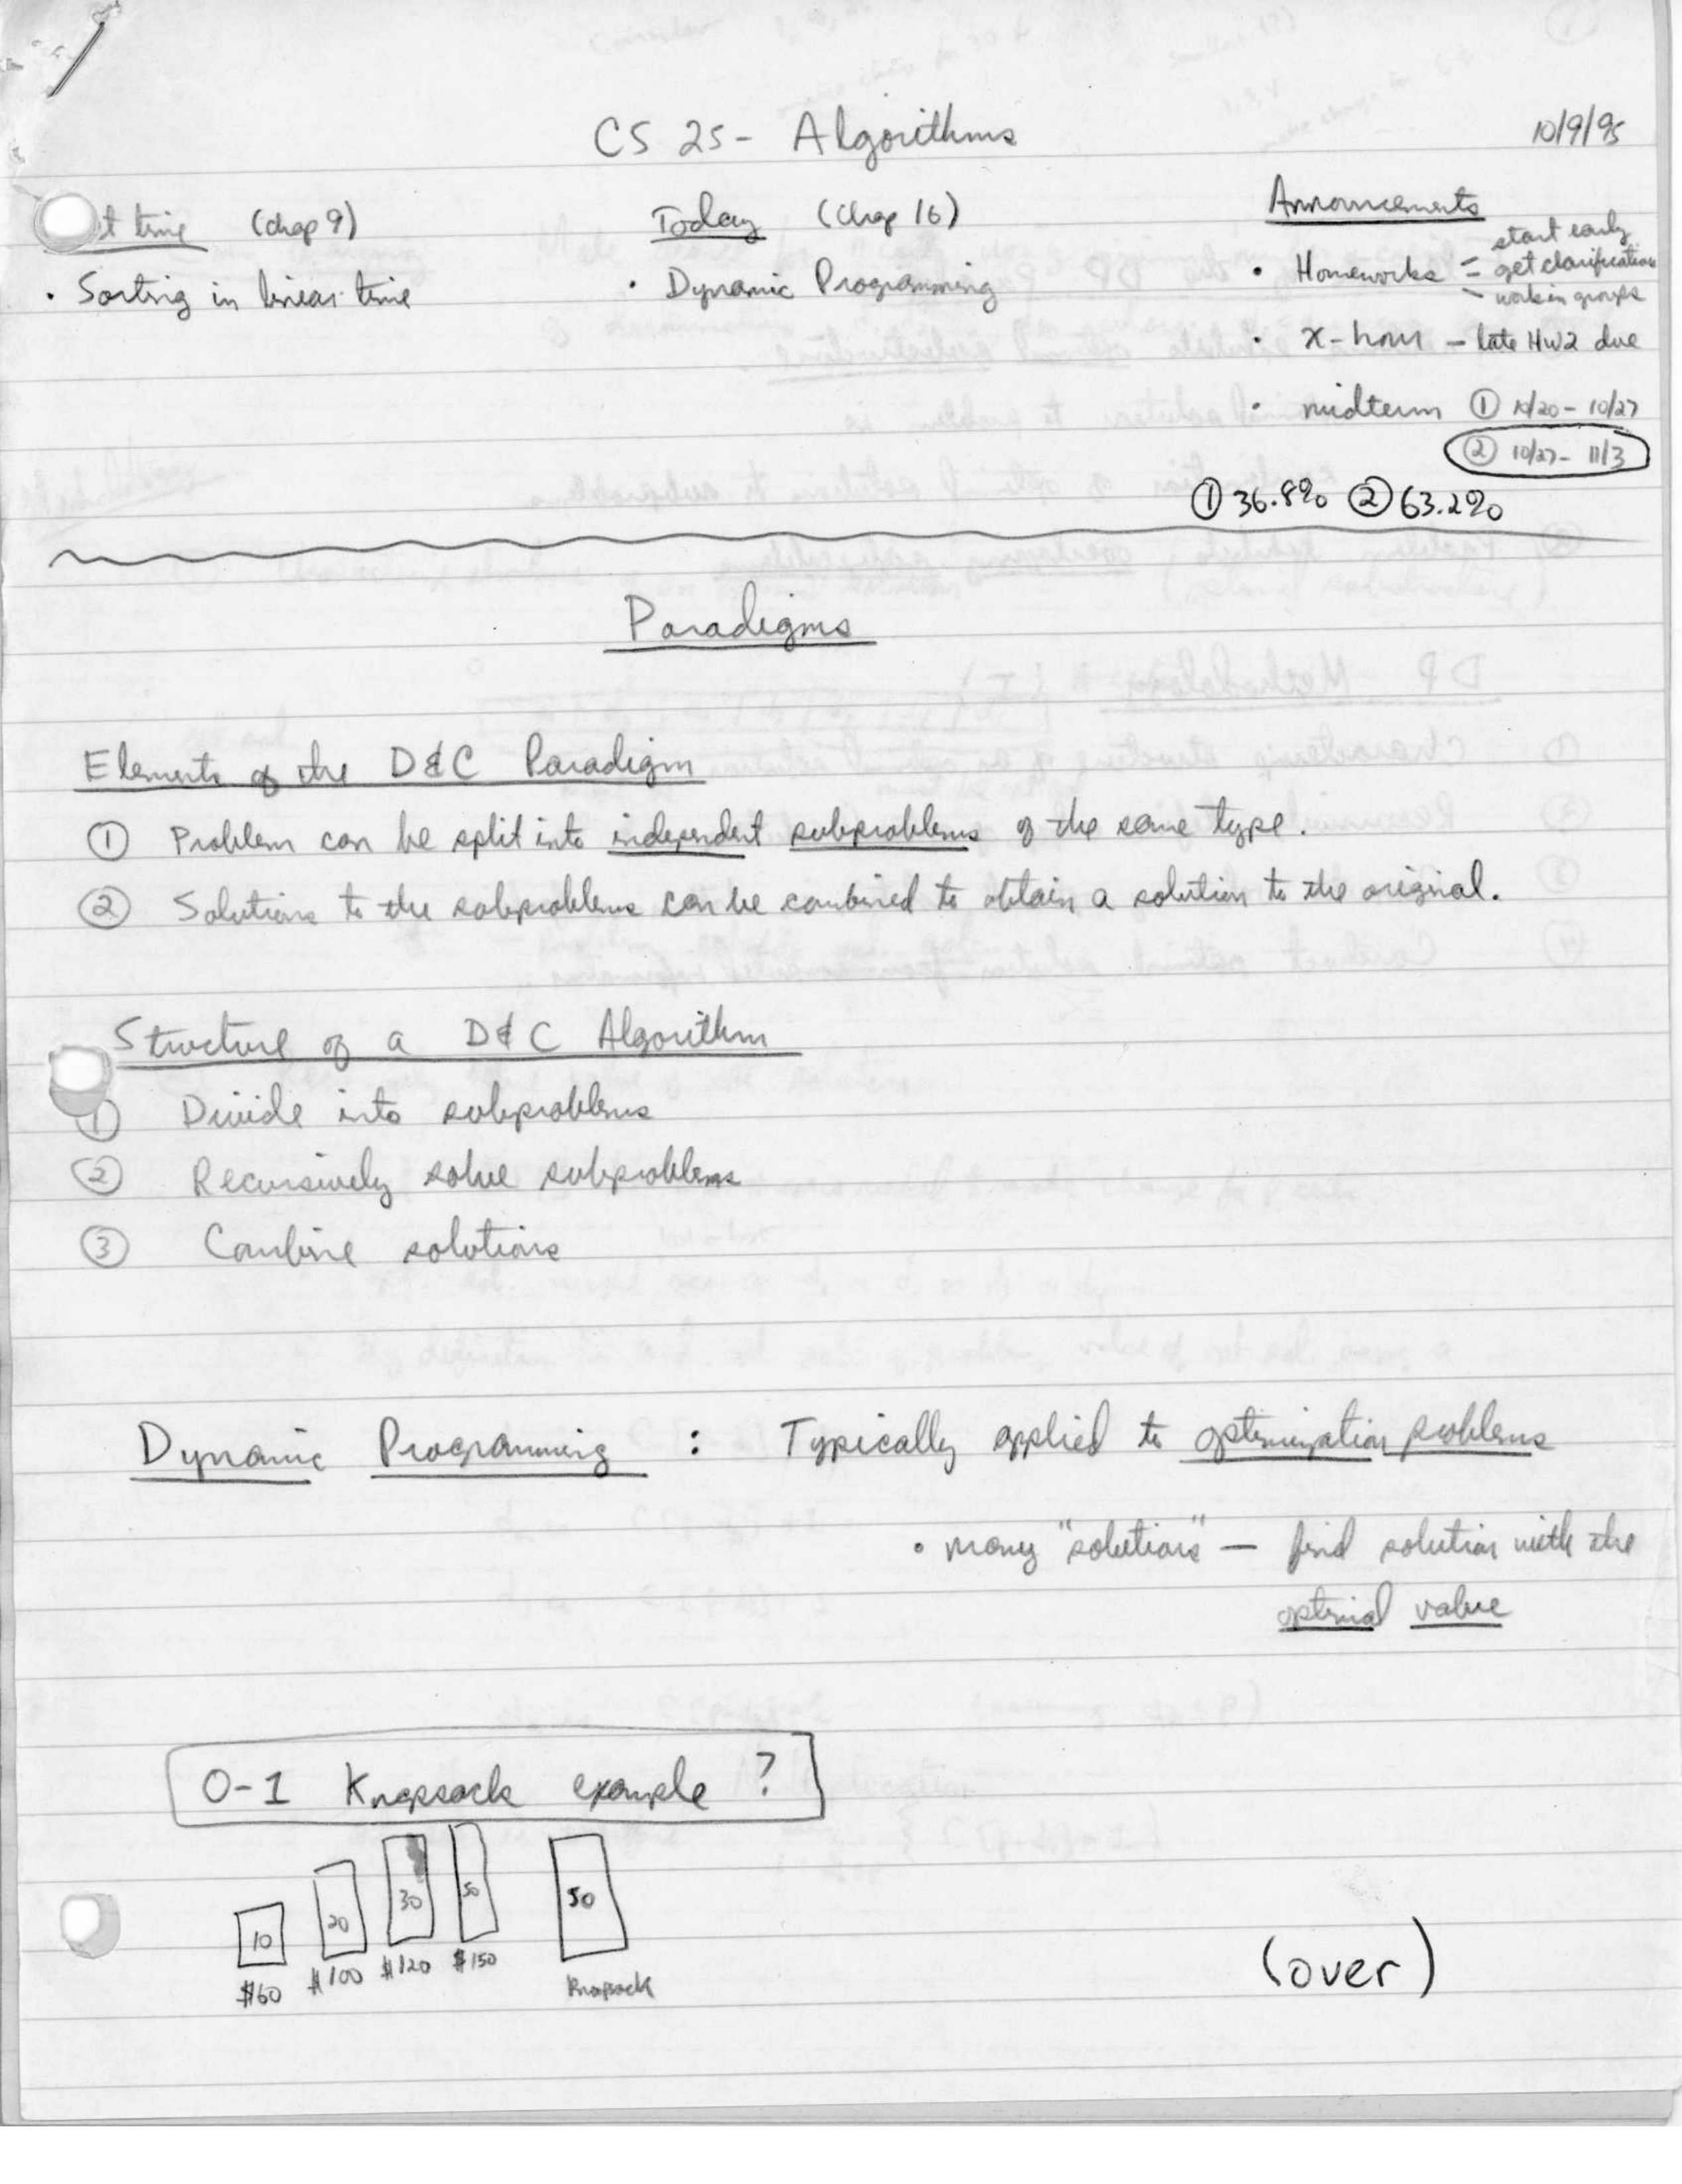 CS 25 - Algorithms
10/9/95
t time (chap 9)
Today (Chap 16)
Announcements
• Sorting in linear time
• Dynamic Programming
• Homeworks - start early
- get clarification
- work in groups
• x-hour - late HW2 due
• midterm ① 10/20 - 10/27
② 10/27 - 11/3
① 36.8% ② 63.2%
Paradigms
Elements of the D&C Paradigm
① Problem can be split into independent subproblems of the same type.
② Solutions to the subproblems can be combined to obtain a solution to the original.
Structure of a D&C Algorithm
① Divide into subproblems
② Recursively solve subproblems
③ Combine solutions
Dynamic Programming : Typically applied to optimization problems
• many "solutions" — find solution with the
optimal value
0-1 Knapsack example ?
10 20 30 50 50
$60 $100 $120 $150 Knapsack
(over)